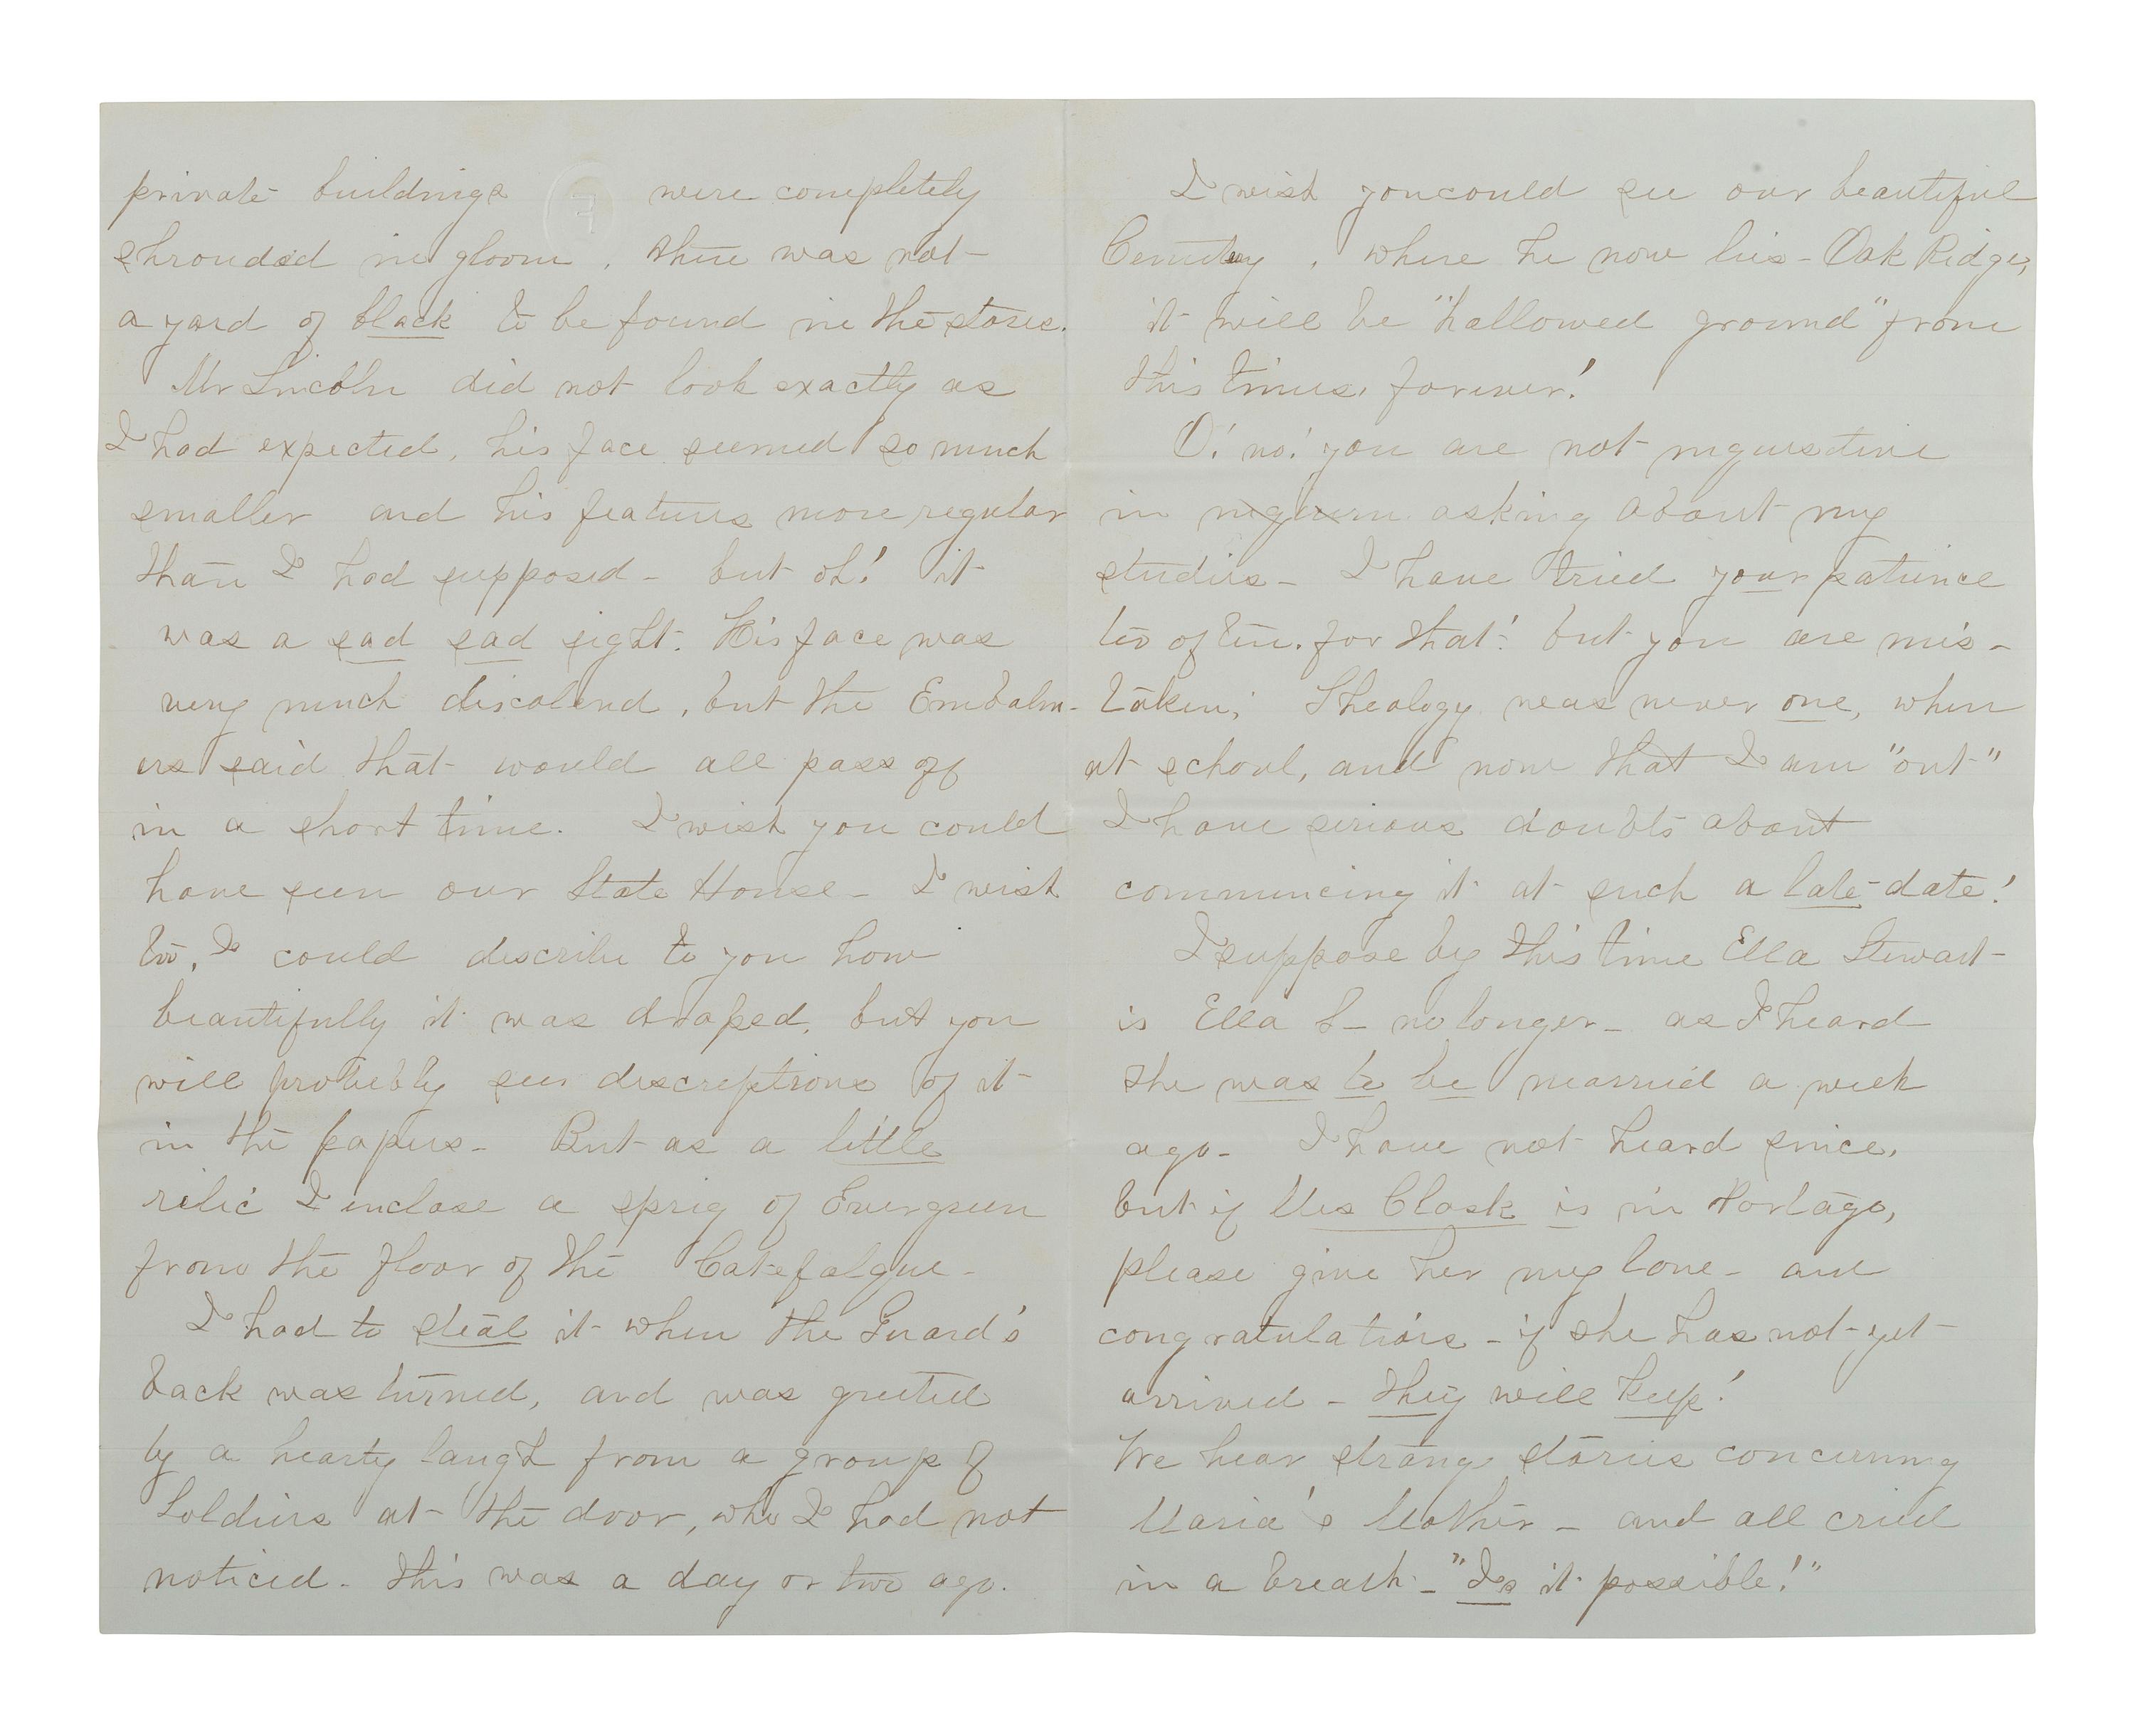 private buildings were completely
shrouded in gloom. there was not-
a yard of black to be found in the stores.
Mr Lincoln did not look exactly as
I had expected, his face seemed so much
smaller and his features more regular
than I had supposed - but oh! it
was a sad sad sight. His face was
very much discolored, but the Embalm-
ers said that would all pass off
in a short time. I wish you could
have seen our State House - I wish
too, I could describe to you how
beautifully it was draped, but you
will probebly see discreptions of it
in the papers - But as a little
relic I enclose a sprig of Evergreen
from the floor of the Catefalque -
I had to steal it when the Guard's
back was turned, and was greeted
by a hearty laugh from a group of
Soldiers at the door, who I had not
noticed - this was a day or two ago.
I wish you could see our beautiful
Cemetery, where he now lies - Oak Ridge,
it will be "hallowed ground" from
this time, forever!
O! no! you are not inquisitive
in asking about my
studies - I have tried your patience
too often for that! but you are mis-
taken; Theology was never one, when
at school, and now that I am "out"
I have serious doubts about
commencing it at such a late date!
I suppose by this time Ella Stewart-
is Ella S - no longer - as I heard
she was to be married a week
ago - I have not heard since,
but if Mrs Clark is in Portage,
please give her my love - and
congratulations - if she has not yet
arrived - they will keep!
We hear strange stories concerning
Maria's Mother - and all cried
in a breath - "Is it possible!"